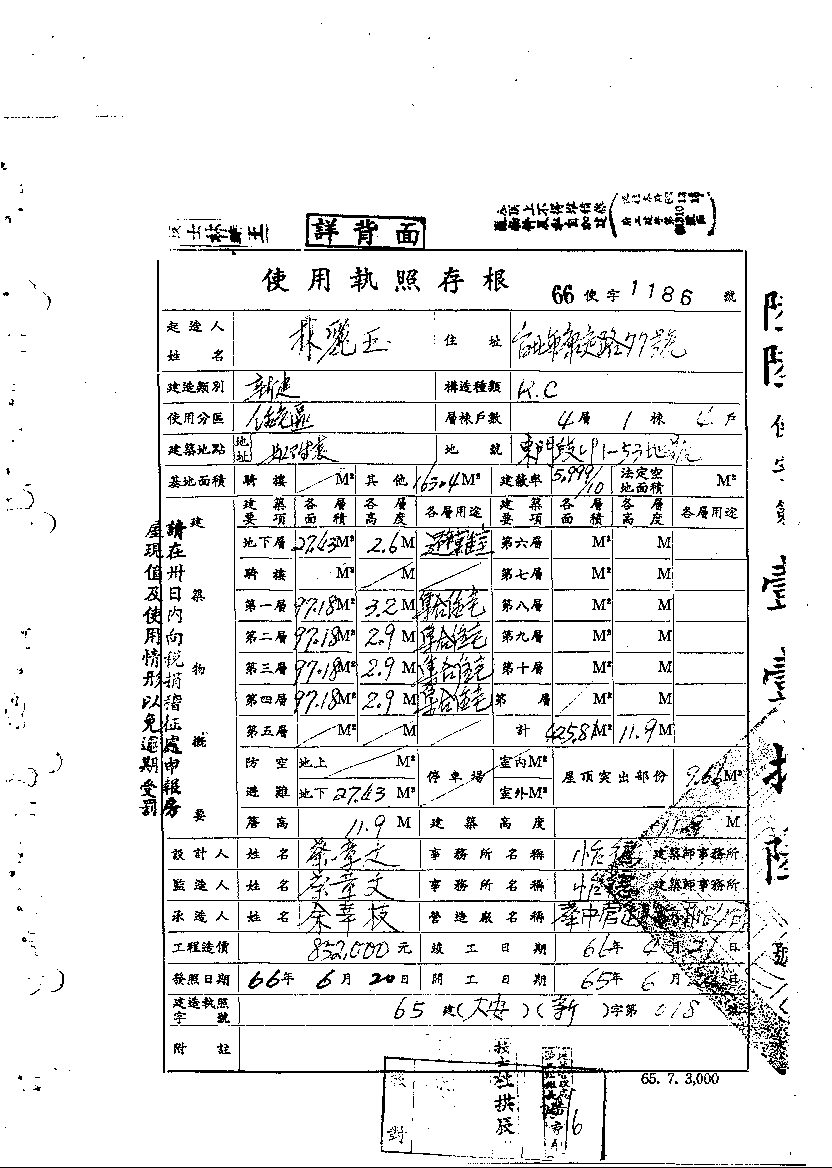 技士林麗玉
詳背面
使用執照存根
66 使字 1186 號
起造人姓名 林麗玉 住址 台北市 路77號
建造類別 新建 構造種類 R.C
使用分區 住宅區 層棟戶數 4層 1棟 4戶
建築地點 地址 地號 東門段 1-53地號
基地面積 騎樓 M² 其他 163.4M² 建蔽率 5.999/10 法定空地面積 M²
建築物概要
建築要項 各層面積 各層高度 各層用途 建築要項 各層面積 各層高度 各層用途
地下層 27.43M² 2.6M 避難室 第六層 M² M
騎樓 M² M 第七層 M² M
第一層 97.18M² 3.2M 集合住宅 第八層 M² M
第二層 97.18M² 2.9M 集合住宅 第九層 M² M
第三層 97.18M² 2.9M 集合住宅 第十層 M² M
第四層 97.18M² 2.9M 集合住宅 第 層 M² M
第五層 M² M 計 425.81M² 11.9M
防空避難 地上 M² 地下 27.43M² 停車場 室內M² 室外M² 屋頂突出部份 9.66M²
簷高 11.9M 建築高度 11.9M
設計人 姓名 蔡章文 事務所名稱 建築師事務所
監造人 姓名 蔡章文 事務所名稱 建築師事務所
承造人 姓名 余華枝 營造廠名稱 華中營造
工程造價 832,000元 竣工日期 66年 4月 日
發照日期 66年 6月 20日 開工日期 65年 6月 日
建造執照字號 65建(大安)(新)字第018號
附註
65. 7. 3,000
請在卅日內向稅捐稽征處申報房
屋現值及使用情形以免逾期受罰
技士杜拱辰
對